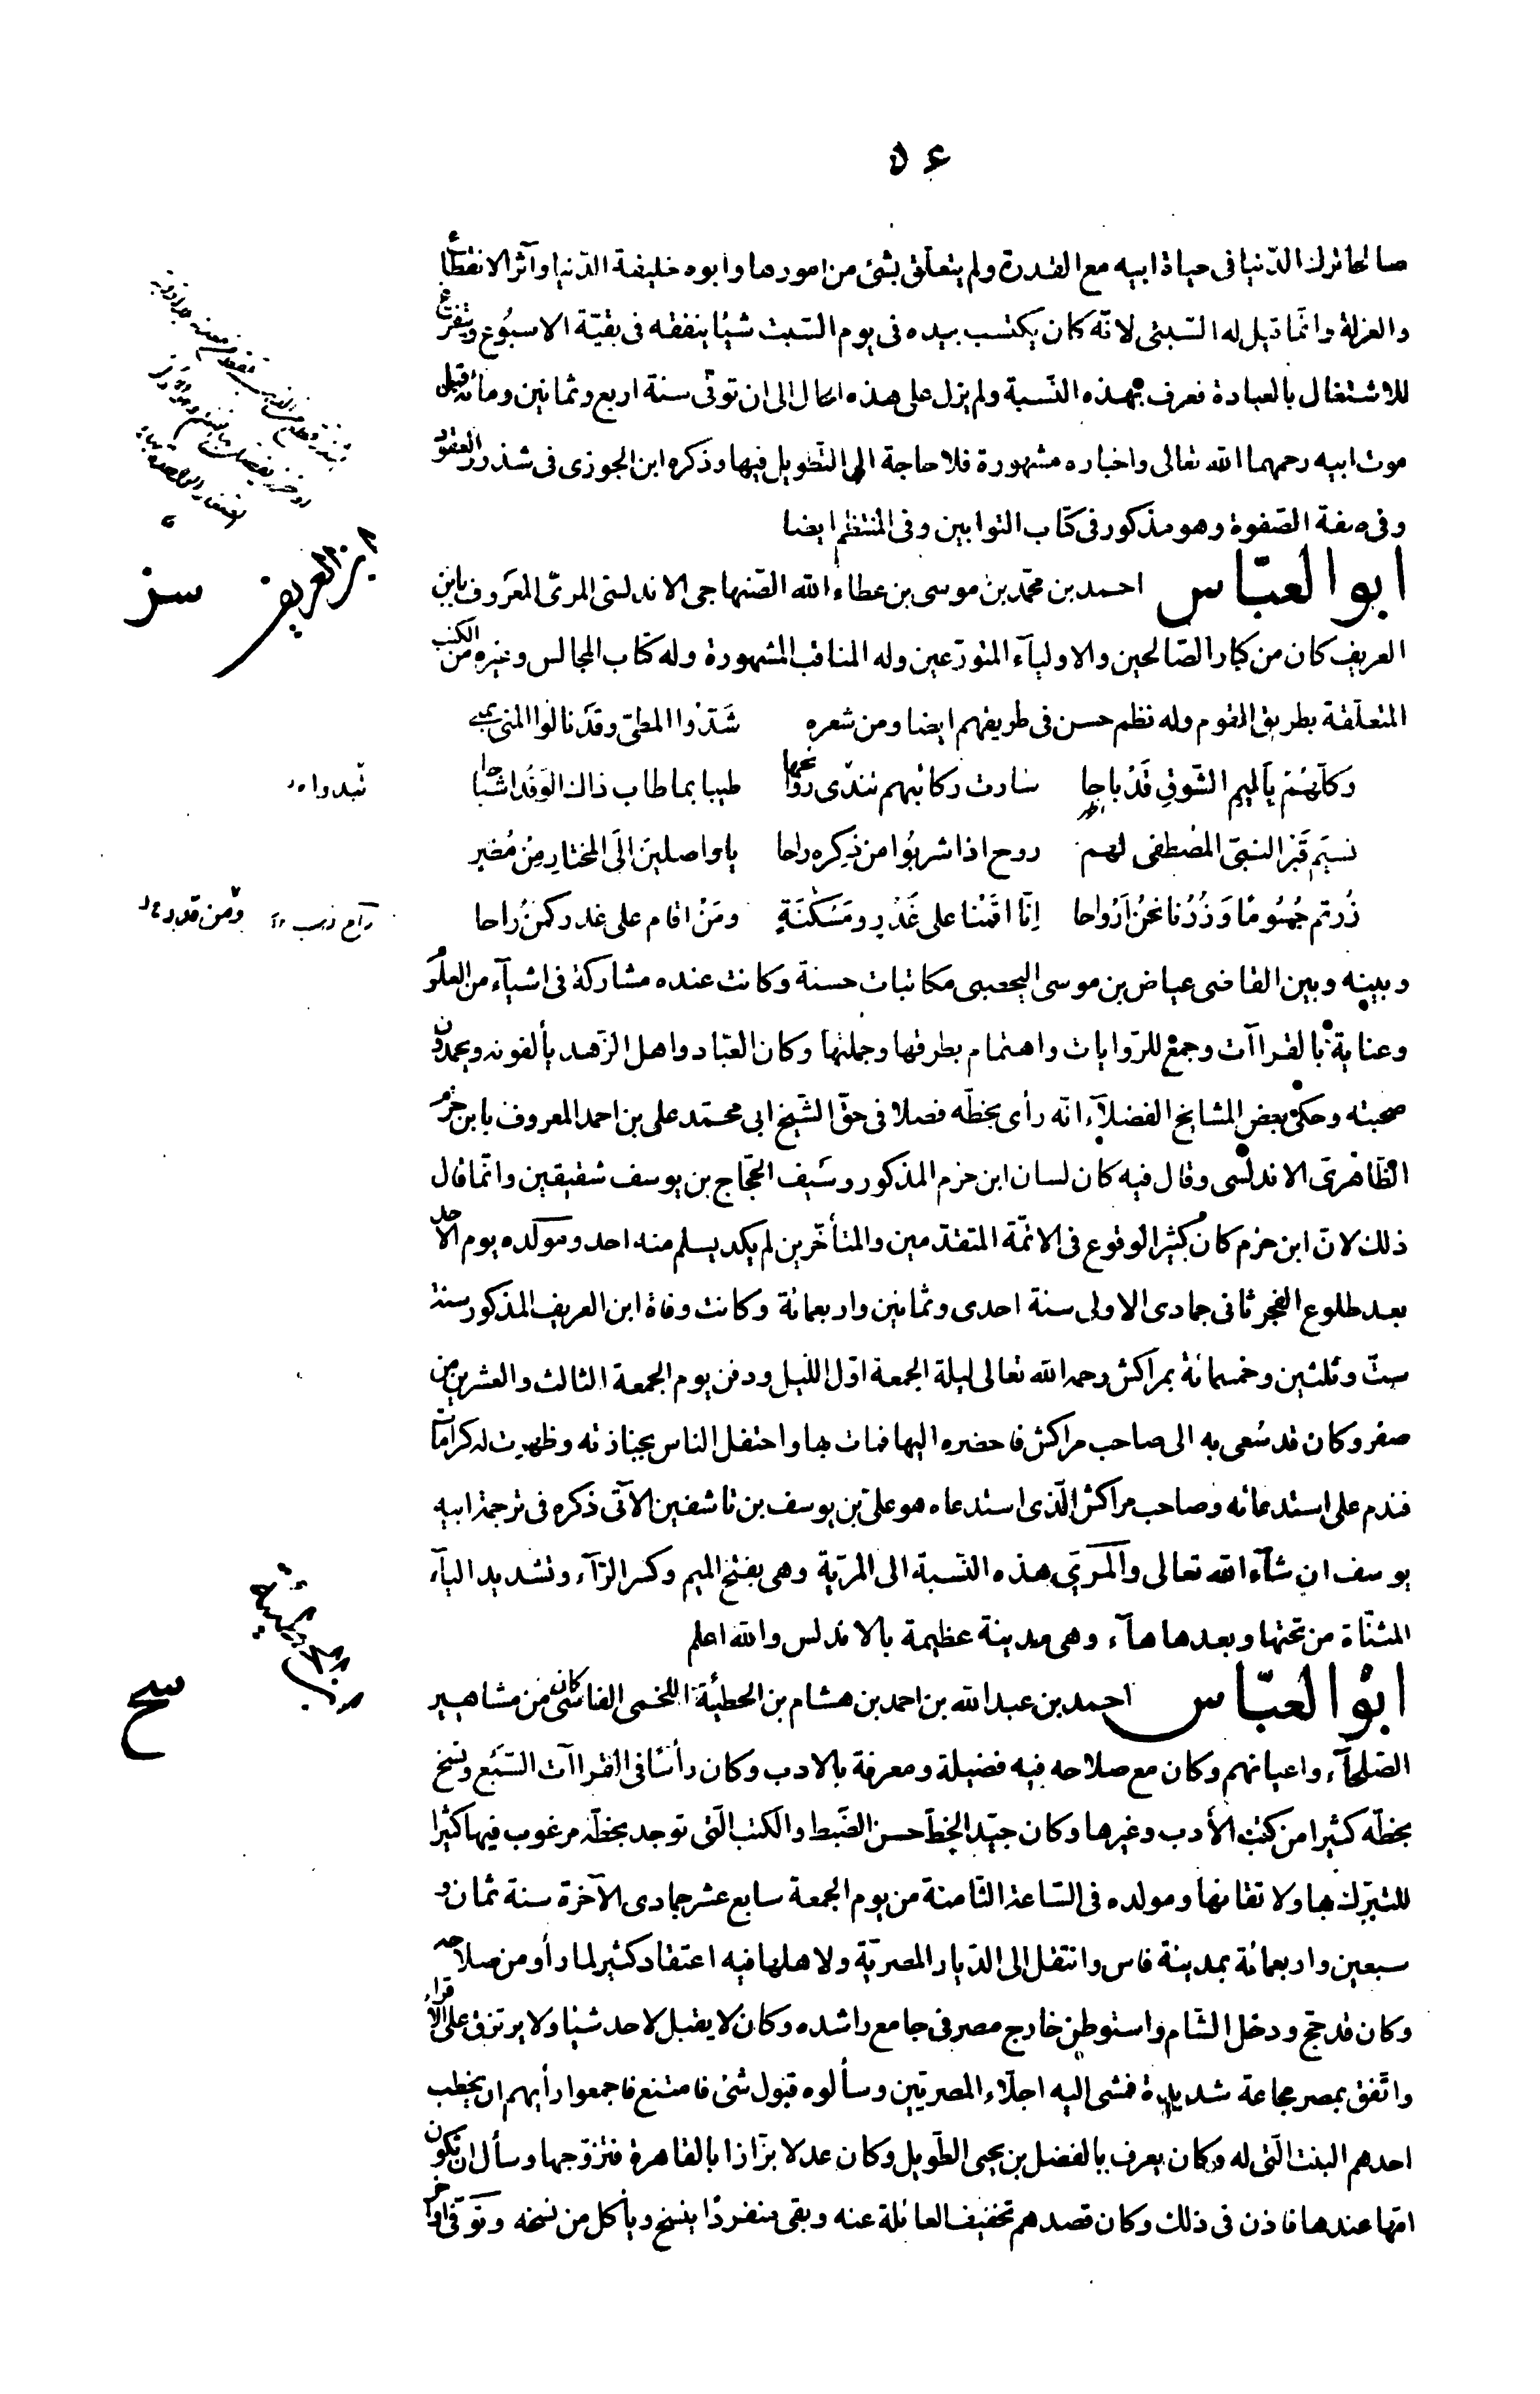 ٥٤
صالحا ترك الدّنيا فى حياة ابيه مع القدرة ولم يتعلّق بشئ من امورها وابوه خليفة الدّنيا وآثر الانقطاع
والعزلة وانّما قيل له السّبتى لانّه كان يكتسب بيده فى يوم السّبت شيئا ينفقه فى بقيّة الاسبُوع ويتفرّغ
للاشتغال بالعبادة فعرف بهذه النّسبة ولم يزل على هذه الحال الى ان توفّى سنة اربع وثمانين ومائة قبل
موت ابيه رحمهما الله تعالى واخباره مشهورة فلا حاجة الى التّطويل فيها وذكره ابن الجوزى فى شذور العقود
وفى صفة الصّفوة وهو مذكور فى كتاب التوابين وفى المنتظم ايضا
ابن العريف سز
ابو العبّاس احمد بن محمّد بن موسى بن عطاء الله الصّنهاجى الاندلسى المرىّ المعروف بابن
العريف كان من كبار الصّالحين والاوليآء المتورّعين وله المناقب المشهورة وله كتاب المجالس وغيره من الكتب
المتعلّقة بطريق القوم وله نظم حسن فى طريقهم ايضا ومن شعره شَدّوا المطىّ وقد نالوا المنى بمنى
وكلّهُمْ بأليم الشّوقِ قَدْ باحا سارت ركائبهم تندّى روائحها طيبا بما طاب ذاك الوَفْد اشباحا
نسيم قَبْر النبىّ المُصْطفى لهم روح اذا شربُوا من ذِكره راحا يا واصلين الَى المختار مِنْ مُضر
زُرتم جُسُومًا وَزُرْنا نحْنُ اَرْوَاحا اِنّا اقَمْنا على عُذْر ومَسكنَةٍ ومَنْ اقام على عذر كمَنْ راحا
وبينه وبين القاضى عياض بن موسى اليحصبى مكاتبات حسنة وكانت عنده مشاركة فى اشيآء من العلوم
وعناية بالقراآت وجمع للرّوايات واهتمام بطرقها وجملتها وكان العبّاد واهل الزّهد يألفونه ويحمدون
صحبته وحكى بعض المشايخ الفضلآء انّه رأى بخطّه فصلا فى حقّ الشّيخ ابى محمّد على بن احمد المعروف بابن حزم
الظّاهرىّ الاندلسى وقال فيه كان لسان ابن حزم المذكور وسَيف الحجّاج بن يوسف شقيقين وانّما قال
ذلك لانّ ابن حزم كان كثير الوقوع فى الائمّة المتقدّمين والمتأخّرين لم يكد يسلم منه احد ومولده يوم الاحد
بعد طلوع الفجر ثانى جمادى الاولى سنة احدى وثمانين واربعمائة وكانت وفاة ابن العريف المذكور سنة
ستّ وثلثين وخمسمائة بمراكش رحمه الله تعالى ليلة الجمعة اوّل اللّيل ودفن يوم الجمعة الثالث والعشرين من
صفر وكان قد سُعى به الى صاحب مراكش فاحضره اليها فمات بها واحتفل الناس بجنازته وظهرت له كرامات
فندم على استدعائه وصاحب مراكش الّذى استدعاه هو علىّ بن يوسف بن تاشفين الآتى ذكره فى ترجمة ابيه
يوسف ان شآء الله تعالى والمَرِىّ هذه النّسبة الى المريّة وهى بفتح الميم وكسر الرّآء وتشديد اليآء
المثنّاة من تحتها وبعدها هآء وهى مدينة عظيمة بالاندلس والله اعلم
سح
ابُو العبّاس احمد بن عبد الله بن احمد بن هشام بن الحطيئة اللخمى الفاسى كان من مشاهير
الصّلحآء واعيانهم وكان مع صلاحه فيه فضيلة ومعرفة بالادب وكان رأسًا فى القراآت السّبع ونسخ
بخطّه كثيرا من كتب الأدب وغيرها وكان جيّد الخطّ حسن الضّبط والكتب الّتى توجد بخطّه مرغوب فيها كثيرا
للتبرّك بها ولاتقانها ومولده فى السّاعة الثّامنة من يوم الجمعة سابع عشر جمادى الآخرة سنة ثمان و
سبعين واربعمائة بمدينة فاس وانتقل الى الدّيار المصريّة ولاهلها فيه اعتقاد كثير لما رأو من صلاحه
وكان قد حجّ ودخل الشّام واستوطن خارج مصر فى جامع راشده وكان لا يقبل لاحد شيئا ولا يرتزق على الاقراء
واتّفق بمصر مجاعة شديدة فمشى اليه اجلّاء المصريّين وسألوه قبول شئ فامتنع فاجمعوا رأيهم ان يخطب
احدهم البنت الّتى له وكان يعرف بالفضل بن يحيى الطّويل وكان عدلا بزّازا بالقاهرة فتزوّجها وسأل ان تكون
امّها عندها فاذن فى ذلك وكان قصدهم تخفيف العائلة عنه وبقى منفردًا ينسخ ويأكل من نسخه وتوّفى اواخر